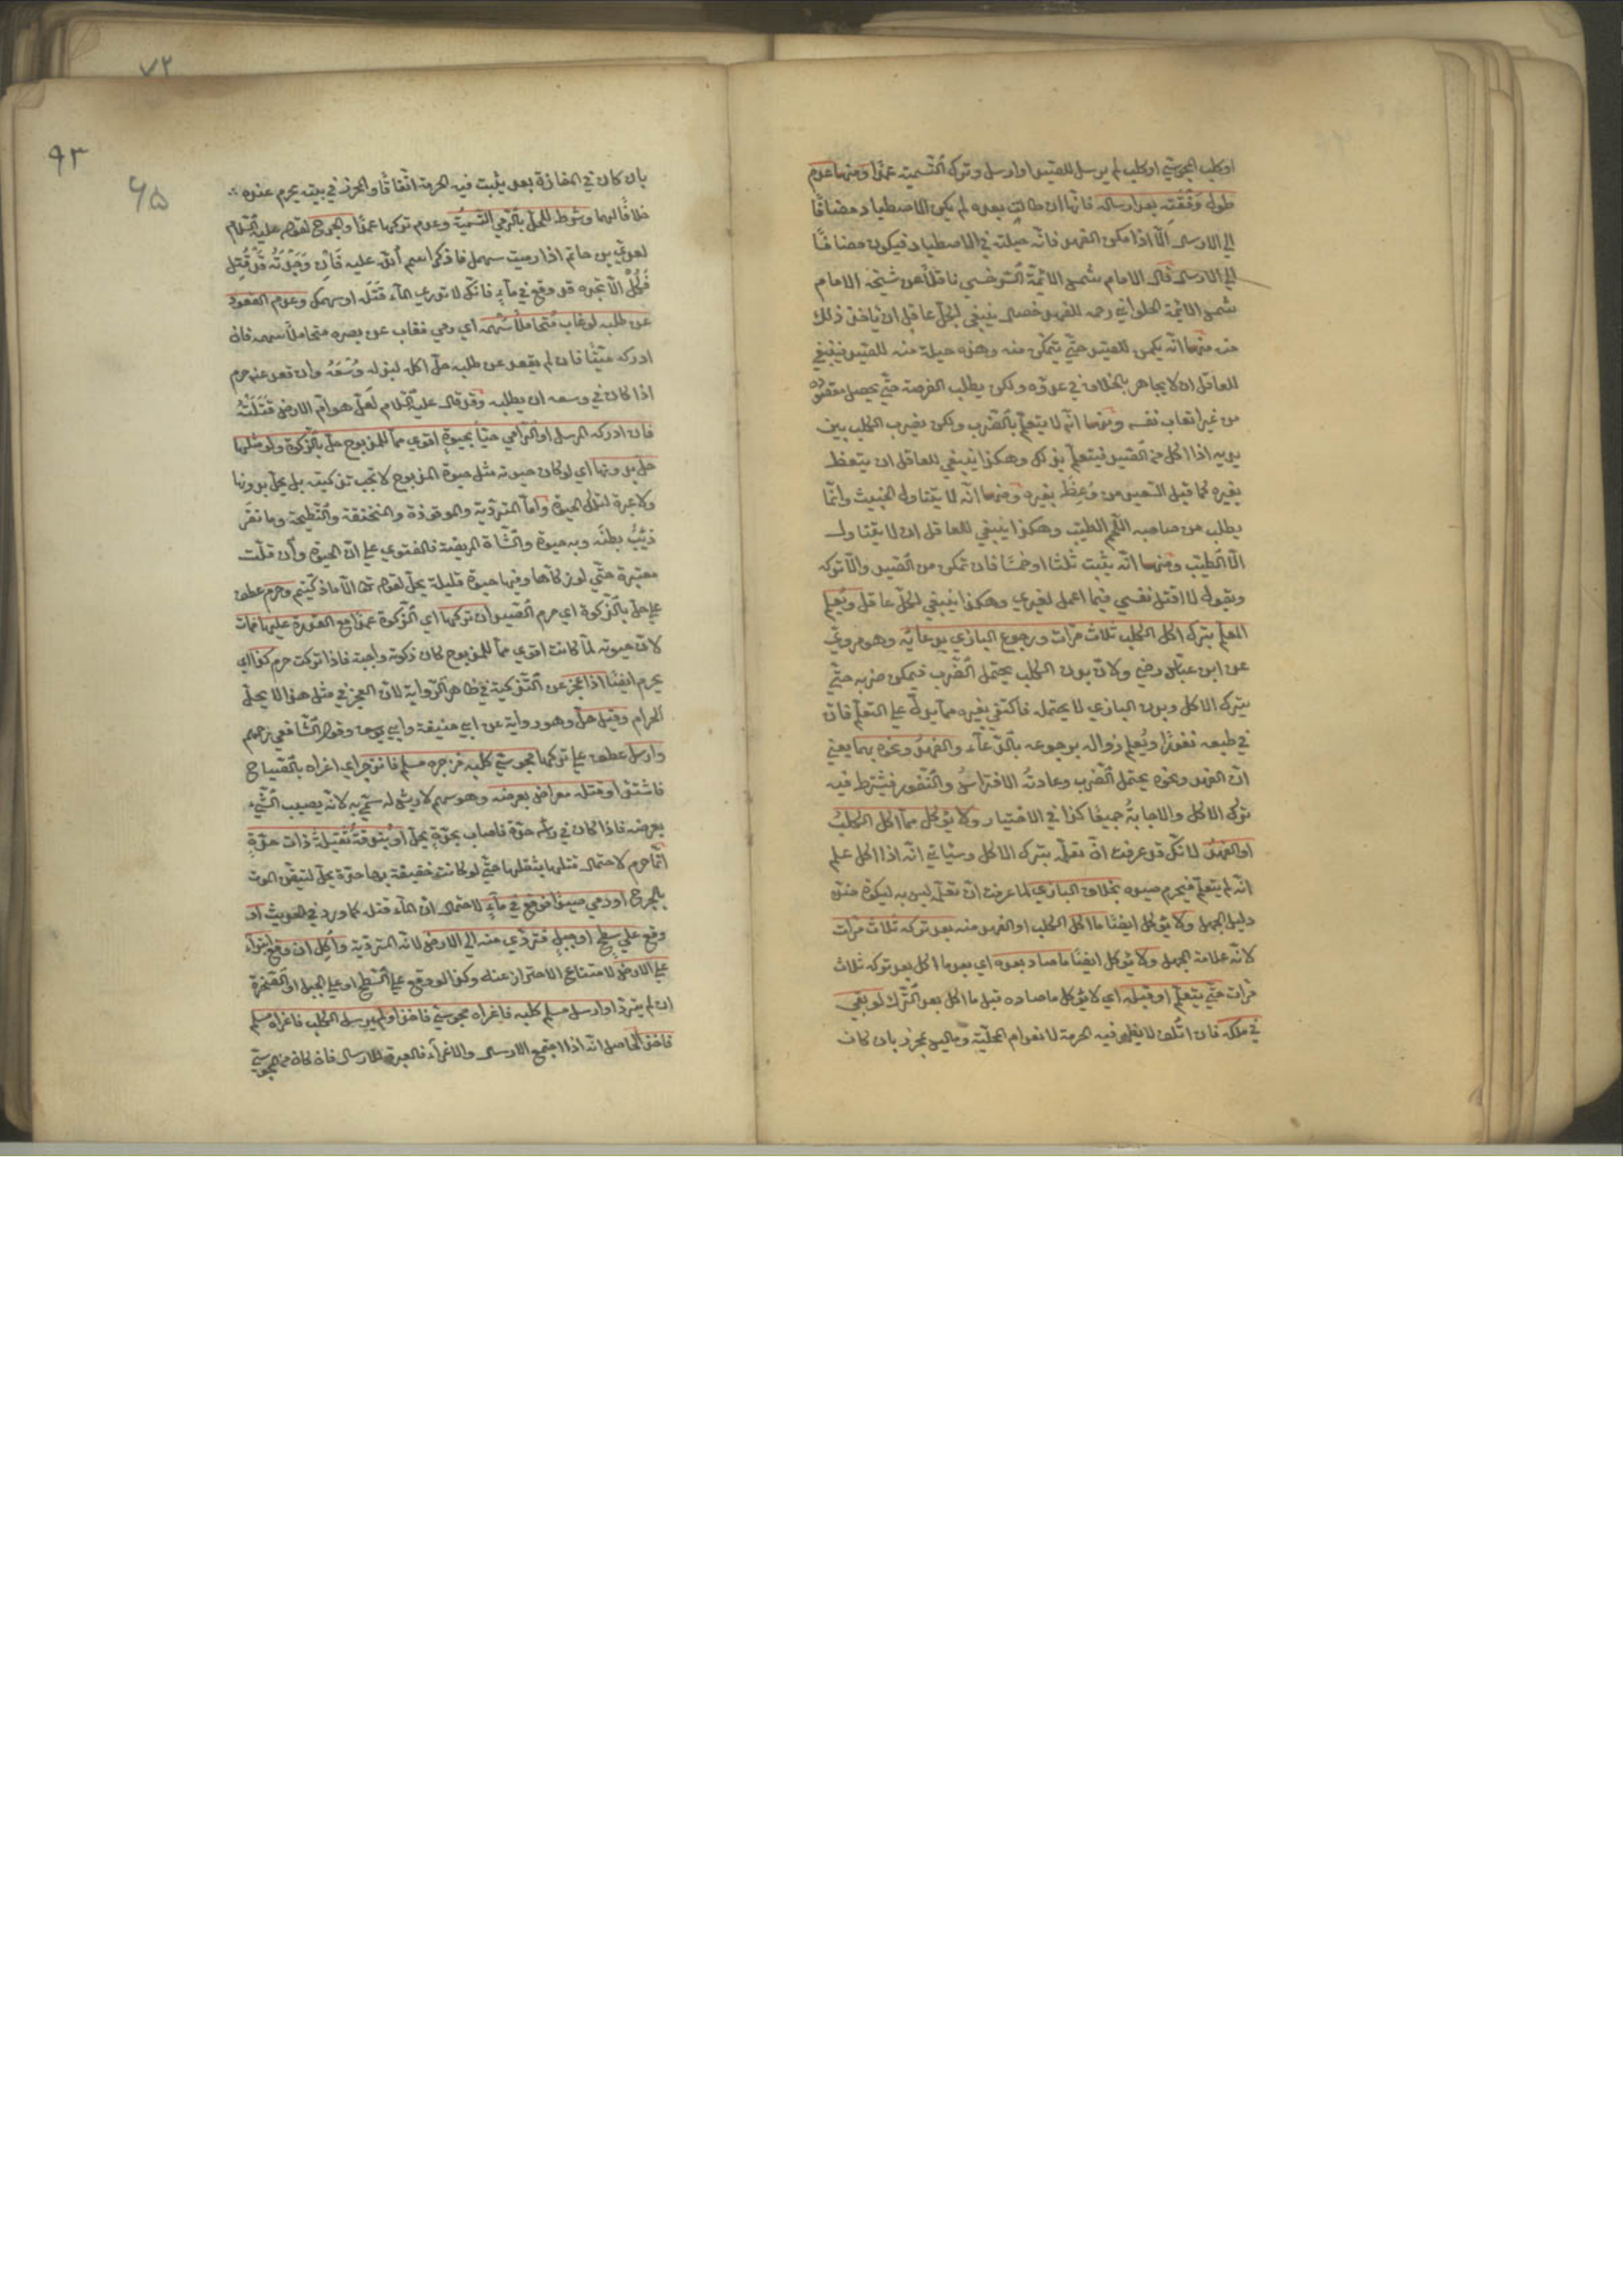 او كلب المجوسي او كلب لم يرسل للصيد او ارسل وترك التسمية عمدا ومنها عدم
طول وقفته بعد ارساله فانها ان طالت بعده لم يكن الاصطياد مضافا
الى الارسال الا اذا مكن الفهد فانه حيلته في الاصطياد فيكون مضافا
الى الارسال قال الامام شمس الائمة السرخسي ناقلا عن شيخه الامام
شمس الائمة الحلواني رحمه للفهد خصال ينبغي لكل عاقل ان ياخذ ذلك
منه منها انه يكمن للصيد حتى يتمكن منه وهذه حيلة منه للصيد فينبغي
للعاقل ان لا يجاهر بالخلاف في عدوه ولكن يطلب الفرصة حتى يحصل مقصوده
من غير اتعاب نفسه ومنها انه لا يتعلم بالضرب ولكن يضرب الكلب بين
يديه اذا اكل من الصيد فيتعلم بذلك وهكذا ينبغي للعاقل ان يتعظ
بغيره كما قيل السعيد من وعظ بغيره ومنها انه لا يتناول الخبيث وانما
يطلب من صاحبه اللحم الطيب وهكذا ينبغي للعاقل ان لا يتناول
الا الطيب ومنها انه يثبت ثلثا او خمسا فان تمكن من الصيد والا تركه
ويقول لا اقتل نفسي فيما اعمل لغيري وهكذا ينبغي لكل عاقل ويعلم
المعلم بترك اكل الكلب ثلاث مرات ورجوع البازي بدعائه وهو مروي
عن ابن عباس رضي ولان بدن الكلب يحتمل الضرب فيمكن ضربه حتى
يترك الاكل وبدن البازي لا يحتمله فاكتفي بغيره مما يدل على التعلم فان
في طبعه نفورا ويعلم زواله برجوعه بالدعاء والفهد ونحوه بهما يعني
ان الفهد ونحوه يحتمل الضرب وعادته الافتراس والنفور فيشترط فيه
ترك الاكل والاجابة جميعا كذا في الاختيار ولا يؤكل مما اكل الكلب
او الفهد لانك قد عرفت ان تعلمه بترك الاكل وسياتي انه اذا اكل علم
انه لم يتعلم فيحرم صيده بخلاف البازي لما عرفت ان تعلمه ليس به ليكون ضده
دليل الجهل ولا يؤكل ايضا ما اكل الكلب او الفهد منه بعد تركه ثلاث مرات
لانه علامة الجهل ولا يؤكل ايضا ما صاد بعده اي بعد ما اكل بعد تركه ثلاث
مرات حتى يتعلم او قبله اي لا يؤكل ما صاده قبل ما اكل بعد الترك لو بقي
في ملكه فان اتلف لا يظهر فيه الحرمة لانعدام المحلية وما ليس بمحرز بان كان
٧٢
٩٣
٦٥
بان كان في المفازة بعد يثبت فيه الحرمة اتفاقا والمحرز في بيته يحرم عنده
خلافا لهما وشرط للحل بالرمي التسمية وعدم تركها عمدا والجرح لقوله عليه السلام
لعدي بن حاتم اذا رميت سهمك فاذكر اسم الله عليه فان وجدته قد قتل
فكل الا تجده قد وقع في ماء فانك لا تدري الماء قتله او سهمك وعدم القعود
عن طلبه لو غاب متحاملا سهمه اي رمي فغاب عن بصره متحاملا سهمه فان
ادركه ميتا فان لم يقعد عن طلبه حل اكله لبذله وسعه وان قعد عنه حرم
اذا كان في وسعه ان يطلبه وقد قال عليه السلام لعل هوام الارض قتلته
فان ادركه المرسل او الرامي حيا بحيوة اقوى مما للمذبوح حل بالذكوة ولو مثلها
حل بدونها اي لو كان حيوته مثل حيوة المذبوح لا تجب تذكيته بل يحل بدونها
ولا عبرة لتلك الحيوة واما المتردية والموقوذة والمنخنقة والنطيحة وما نقر
ذئب بطنه وبه حيوة والشاة المريضة فالفتوى على ان الحيوة وان قلت
معتبرة حتى لو ذكاها وفيها حيوة قليلة يحل لقوله تعالى الا ما ذكيتم وحرم عطف
على حل بالذكوة اي حرم الصيد ان تركها اي الذكوة عمدا مع القدرة عليها فمات
لان حيوته لما كانت اقوى مما للمذبوح كان ذكوته واجبة فاذا تركت حرم كذا اي
يحرم ايضا اذا عجز عن التذكية في ظاهر الرواية لان العجز في مثل هذا لا يحل
الحرام وقيل حل وهو رواية عن ابي حنيفة وابي يوسف وقول الشافعي رحمهم
وارسل عطف على تركها مجوسي كلبه فزجره مسلم فانزجر اي اغراه بالصياح
فاشتد او قتله معراض بعرضه وهو سهم لا ريش له سمي به لانه يصيب الشيء
بعرضه فاذا كان في راسه حدة فاصاب بحده يحل او بندقة ثقيلة ذات حدة
انما حرم لاحتمال قتلها بثقلها حتى لو كانت خفيفة بها حدة يحل لتيقن الموت
بالجرح او رمي صيدا فوقع في ماء لاحتمال ان الماء قتله كما ورد في الحديث او
وقع على سطح او جبل فتردى منه الى الارض لانه المتردية واكل ان وقع ابتداء
على الارض لامتناع الاحتراز عنه وكذا لو وقع على السطح او على الجبل او الصخرة
ان لم يترد او ارسل مسلم كلبه فاغراه مجوسي فاخذ او لم يرسل الكلب فاغراه مسلم
فاخذ الحاصل انه اذا اجتمع الارسال والاغراء فالعبرة للارسال فان كان من المجوسي